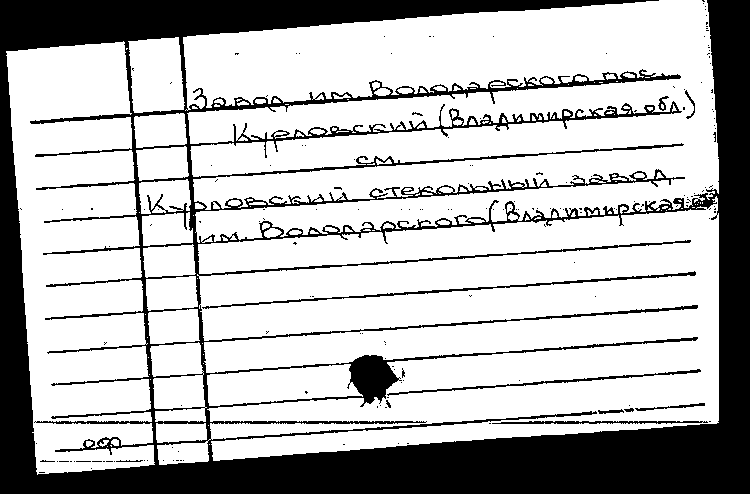 Завод им. Володарского пос.
Курловский (Владимирская обл.)
см.
Курловский стекольный завод
им. Володарского (Владимирская